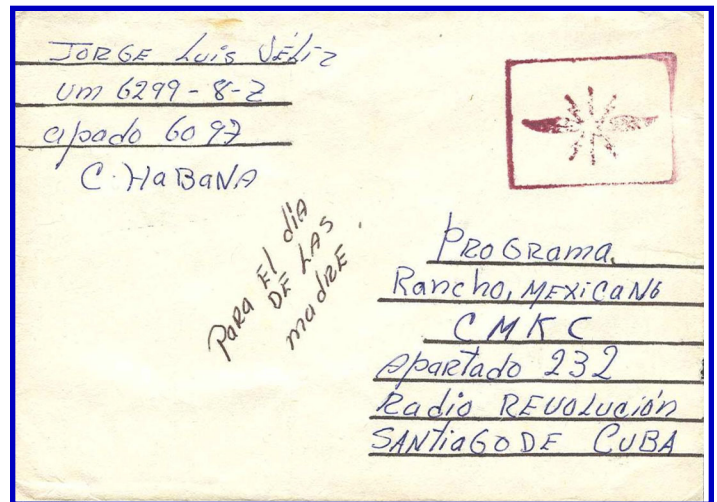 JORGE Luis VÉLIZ
um 6299-8-2
apado 6097
C. HaBaNA
PARA El dia
DE LAS
madRE.
PROGRama.
Rancho, MEXiCANO
CMKC
Apartado 232
Radio REVOLución
SANTiaGO DE CUBA